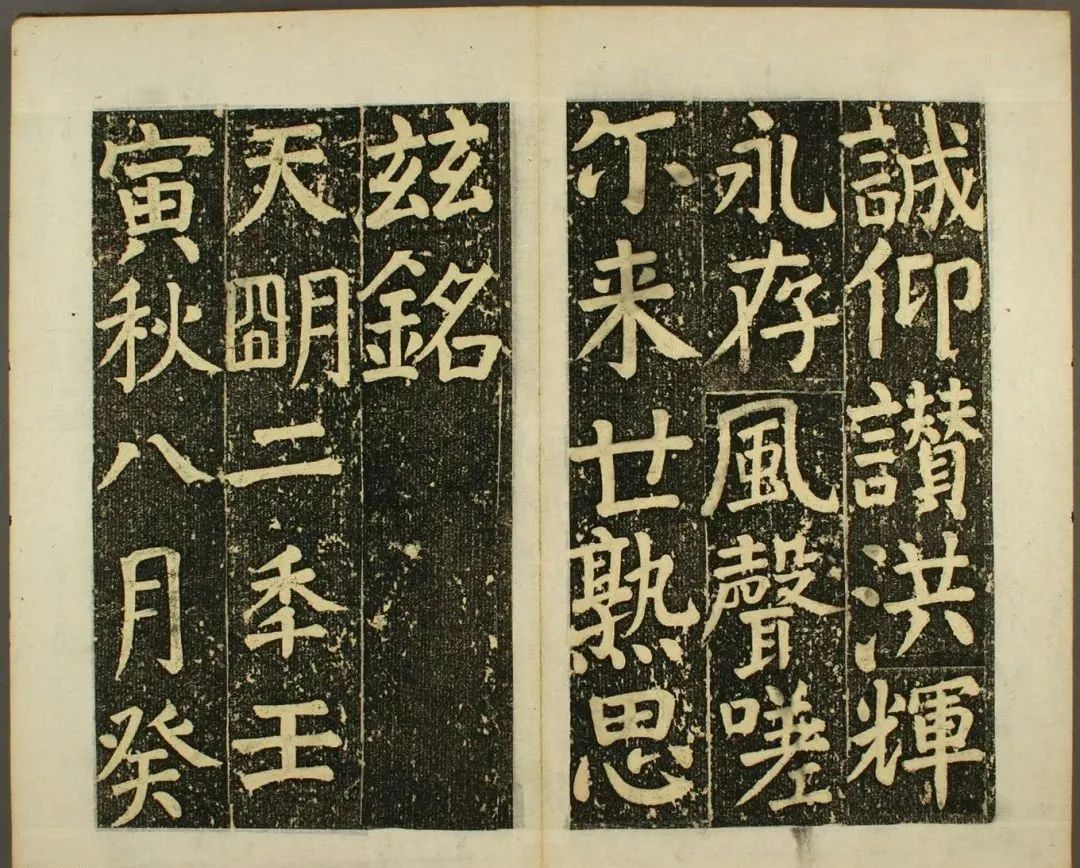 誠仰讃洪輝
永存風聲嗟
尓来世熟思
兹銘
天朙二秊壬
寅秋八月癸